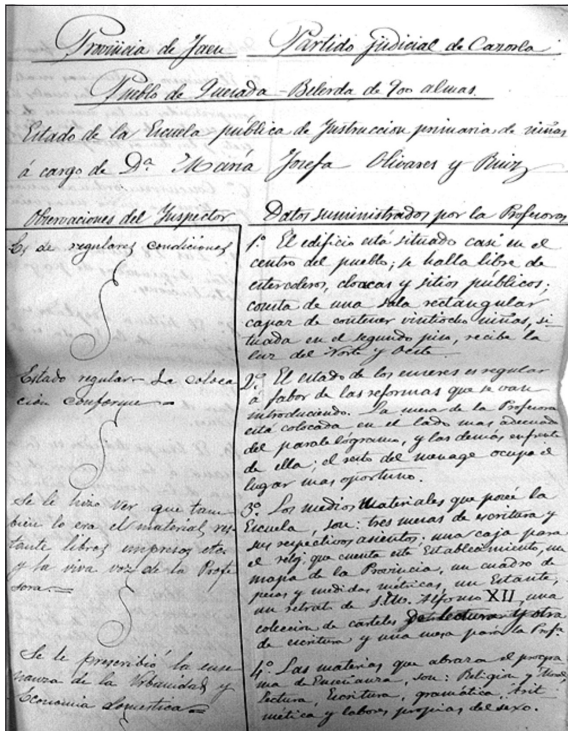 Provincia de Jaen Partido Judicial de Cazorla
Pueblo de Quesada - Belerda de 900 almas
Estado de la Escuela pública de Instruccion primaria de niñas
á cargo de Dª María Josefa Olivares y Ruiz
Observaciones del Inspector
Es de regulares condiciones
Estado regular - La coloca
ción conforme =
Se le hizo ver que tam
bien lo era el material, res
tante libros impresos etas
y la viva voz de la Profe
sora =
Se le prescribió la ense
ñanza de la Urbanidad y
Economia domestica =
Datos suministrados por la Profesora
1º El edificio está situado casi en el
centro del pueblo; se halla libre de
estercoleros, cloacas y sitios públicos;
consta de una sala rectangular
capaz de contener vintiocho niñas, si
tuada en el segundo piso, recibe la
luz del Norte y Oeste
2º El estado de los enseres es regular
á fabor de las reformas que se van
introduciendo. La mesa de la Profesora
está colocada en el lado mas adecuado
del paralelogramo, y las demás enfrente
de ella; el resto del menage ocupa el
lugar mas oportuno.
3º Los medios materiales que posee la
Escuela, son: tres mesas de escritura y
sus respectivos asientos; una caja para
el reloj que cuenta este Establecimiento, un
mapa de la Provincia, un cuadro de
pesas y medidas métricas, un Estante,
un retrato de S.M. Alfonso XII, una
colección de carteles de lectura y otra
de escritura y una mesa para la Profª
4º Las materias que abraza el progra
ma de Enseñanza, son: Religion y Moral,
lectura, Escritura, gramática, Arit
mética y labores propias del sexo.